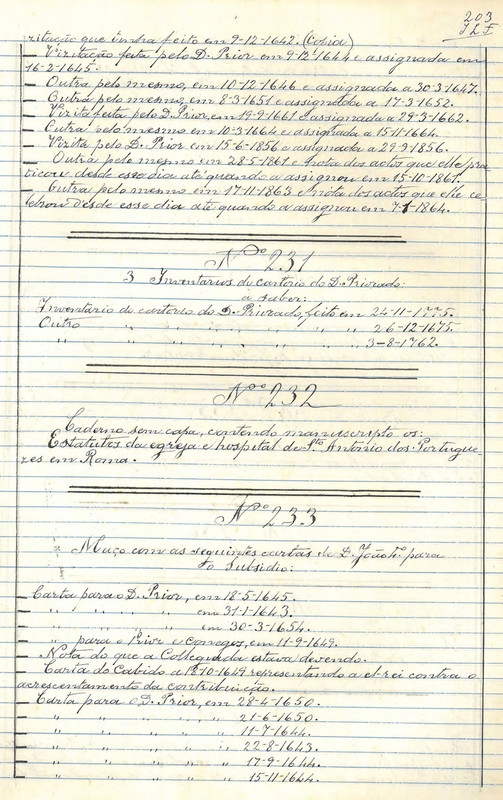 203
J.L.F.
vizitação que tinha feito em 9-12-1642. (Copia)
— Vizitação feita pelo D. Prior em 9-12-1644 e assignada em
16-2-1645.
— Outra pelo mesmo, em 10-12-1646 e assignada a 30-3-1647.
— Outra pelo mesmo, em 8-3-1651 e assignada a 17-3-1652.
— Vizita feita pelo D. Prior, em 19-9-1661 e assignada a 29-3-1662.
— Outra pelo mesmo em 10-3-1664 e assignada a 15-11-1664.
— Vizita pelo D. Prior em 15-6-1856 e assignada a 29-9-1856.
— Outra pelo mesmo em 28-5-1861 e nota dos actos que elle pra-
ticou desde esse dia até quando a assignou em 15-10-1861.
— Outra pelo mesmo em 17-11-1863 e nota dos actos que elle ce-
lebrou desde esse dia até quando a assignou em 7-1-1864.
Nº 231
3 Inventarios do cartorio do D. Priorado:
a saber:
Inventario do cartorio do D. Priorado, feito em 24-11-1775.
Outro " " " " " " " 26-12-1675.
" " " " " " " " 3-8-1762.
Nº 232
Caderno sem capa, contendo manuscripto os:
Estatutos da egreja e hospital de Sto Antonio dos Portugue-
zes em Roma.
Nº 233
Maço com as seguintes cartas de D. João 4º para
o subsidio:
Carta para o D. Prior, em 18-5-1645.
— " " " " em 31-1-1643.
— " " " " em 30-3-1654.
— " para o Prior e conegos, em 11-9-1649.
— Nota do que a Collegiada estava devendo.
— Carta do Cabido a 18-10-1649 representando a el-rei contra o
acrescentamento da contribuição.
— Carta para o D. Prior, em 28-4-1650.
— " " " " " 21-6-1650.
— " " " " " 11-7-1644.
— " " " " " 22-8-1643.
— " " " " " 17-9-1644.
— " " " " " 15-11-1644.